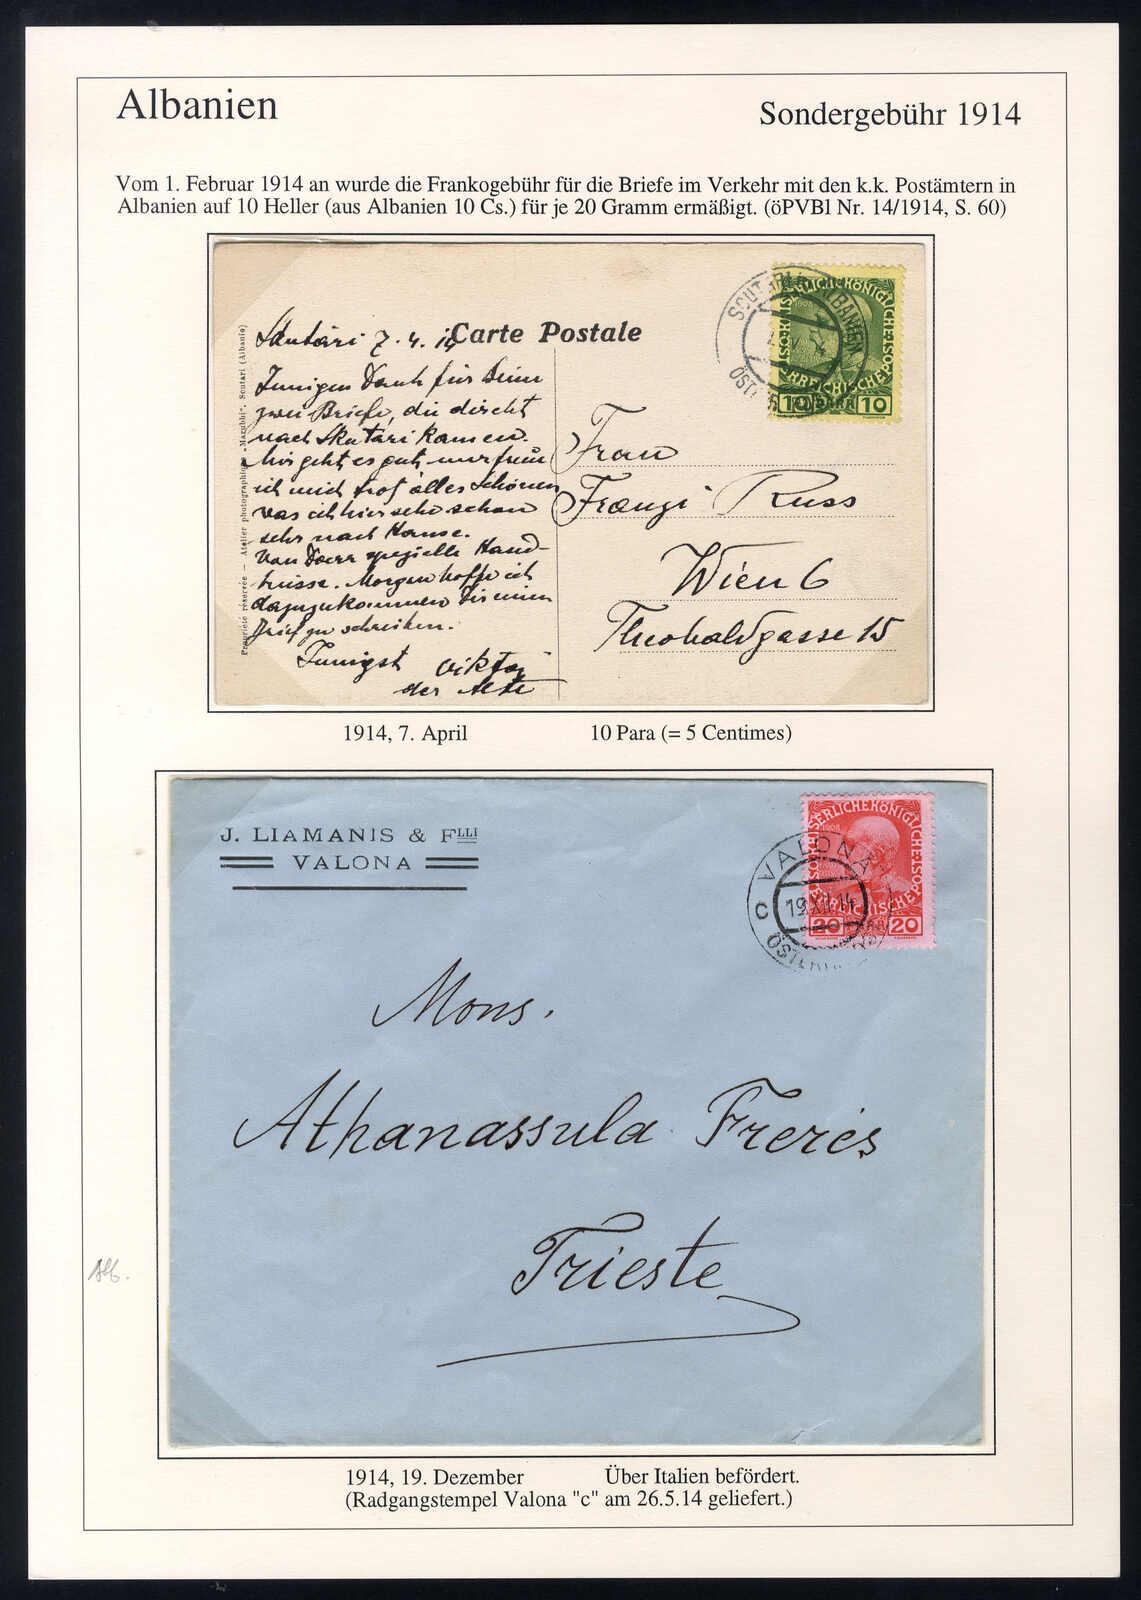 Albanien
Sondergebühr 1914
Vom 1. Februar 1914 an wurde die Frankogebühr für die Briefe im Verkehr mit den k.k. Postämtern in
Albanien auf 10 Heller (aus Albanien 10 Cs.) für je 20 Gramm ermäßigt. (öPVBl Nr. 14/1914, S. 60)
Carte Postale
Propriété réservée — Atelier photographique „Marubbi“, Scutari (Albanie)
Skutari 7.4.14
Innigen Dank für Deine
zwei Briefe, die direkt
nach Skutari kamen.
Mir geht es gut, nur freue
ich mich trotz alles Schönen
was ich hier sehe schon
sehr nach Hause.
Von Doerr spezielle Hand-
küsse. Morgen hoffe ich
dazuzukommen Dir einen
Brief zu schreiben.
Innigst Viktor
der Alte
SCUTARI ALBANIEN
KAISERLICHE KÖNIGLICHE
ÖSTERREICHISCHE POST
1908
10 PARA 10
Frau
Franzi Russ
Wien 6
Theobaldgasse 15
1914, 7. April
10 Para (= 5 Centimes)
J. LIAMANIS & FLLI
VALONA
VALONA
c 19.XII.14
KAISERLICHE KÖNIGLICHE
ÖSTERREICHISCHE POST
1908
20 PARA 20
Mons.
Athanassula Freres
Trieste
Alb.
1914, 19. Dezember
Über Italien befördert.
(Radgangstempel Valona "c" am 26.5.14 geliefert.)